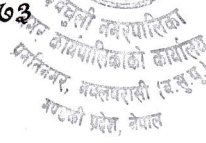 ७३
नगरपालिका
नगर कार्यपालिकाको कार्यालय
प्रगतिनगर, नवलपरासी (ब.सु.पू.)
गण्डकी प्रदेश, नेपाल